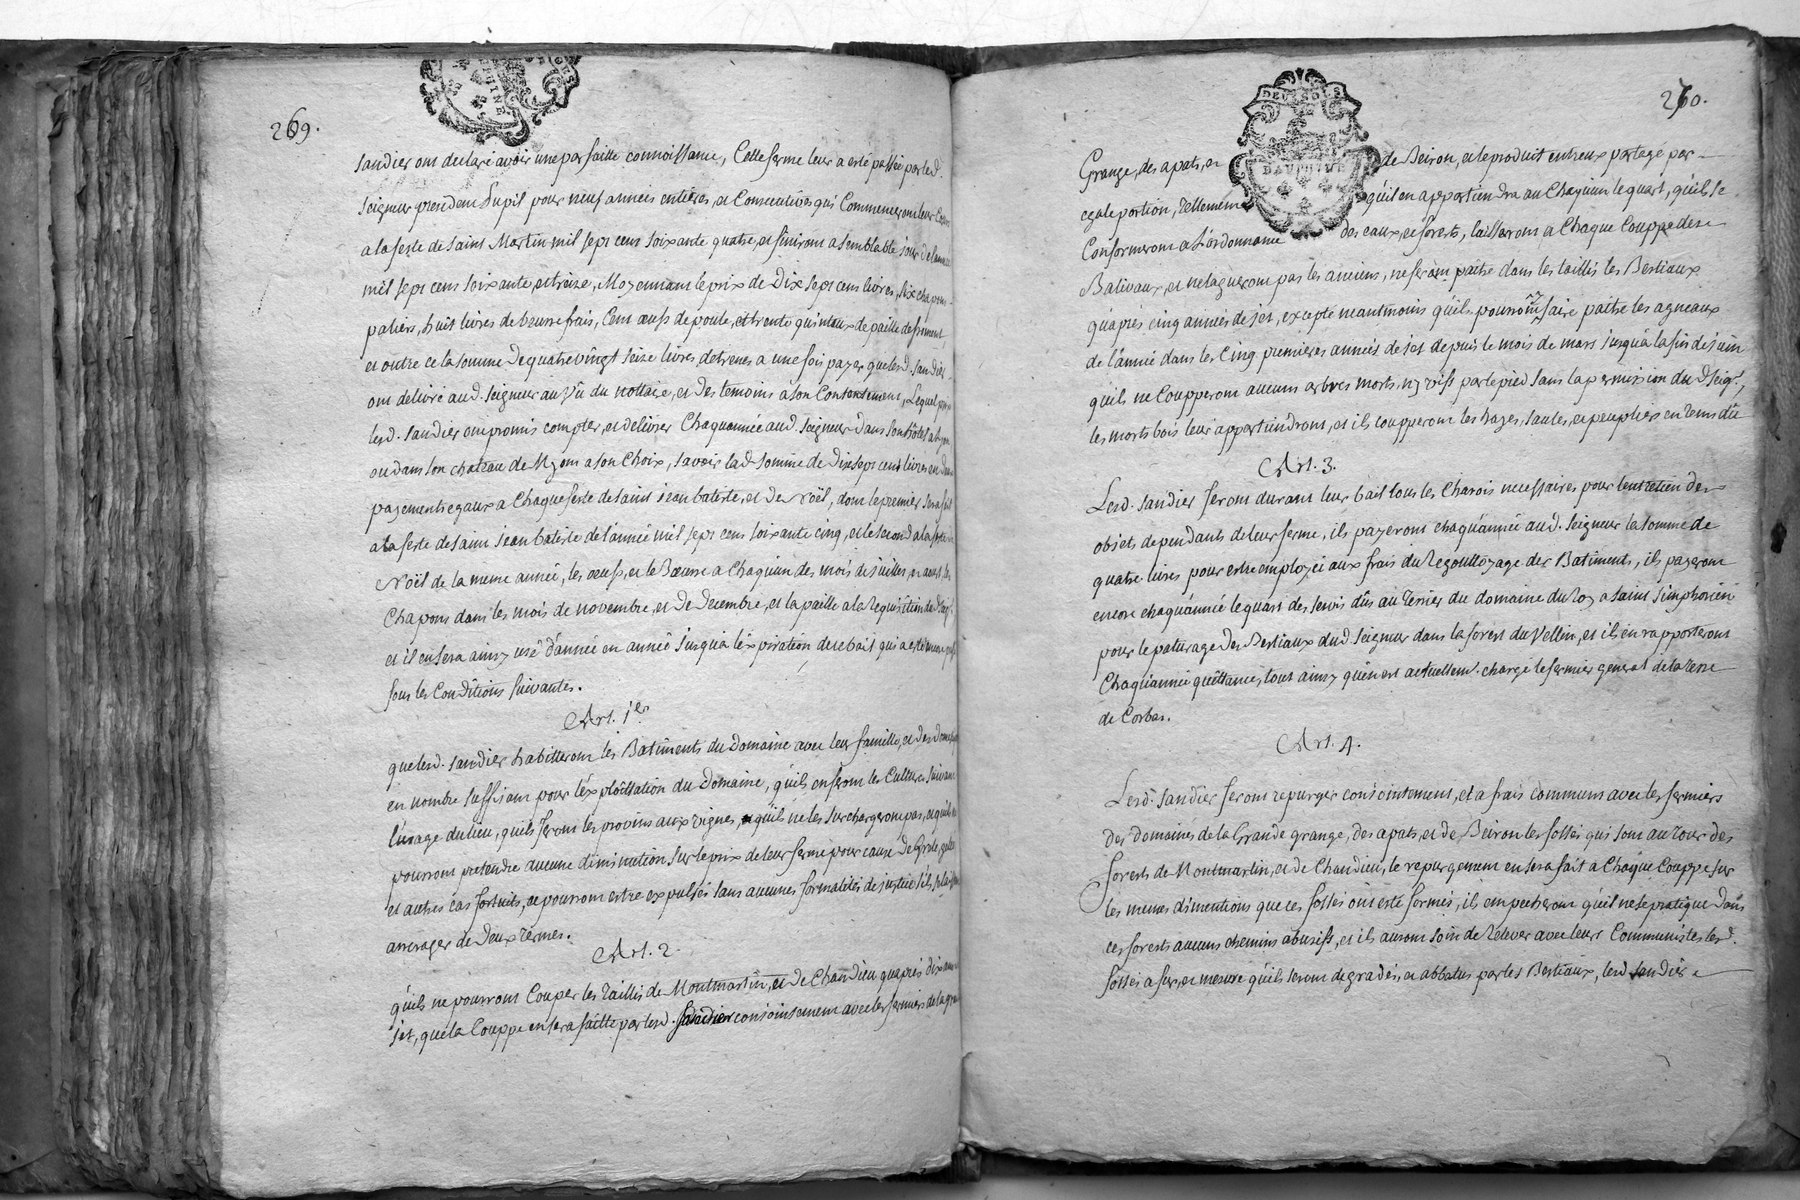 269.
sandier ont declaré avoir une parfaitte connoissance, Cette ferme leur a esté passée par led.
seigneur president Pupil pour neuf années entieres, et Consecutives qui Commenceront leur Cours
a la feste de saint Martin mil sept cent soixante quatre, et finiront a semblable jour de l'année
mil sept cent soixante, et treize, Moyennant le prix de Dix sept cent livres, six chapons
paliers, huit livres de beurre frais, Cent œufs de poule, et trente quintaux de paille de froment
et outre ce la somme De quatre vingt seize livres d'etrenes a une fois payer que lesd. sandier
ont delivré aud. seigneur au Vû du nottaire, et des temoins a son Contentement, Lequel prix
lesd. sandier ont promis compter, et délivrer Chaqu'année aud. seigneur Dans son hôtel a Lyon
ou dans son chateau de Myons a son Choix, savoir lad. somme de dix sept cent livres en deux
payements egaux a Chaque feste de saint jean batiste, et de noël, dont le premier sera fait
a la feste de saint jean batiste de l'année mil sept cent soixante cinq, et le second a la feste de
Noël de la meme année, les œufs, et le Bœurre a Chaquun des mois de juillet, et aoust les
Chapons dans les mois de novembre, et de Decembre, et la paille a la requisition du d. seigr.
et il en sera ainsy usé d'année en année jusqu'a l'éxpiration de ce bail qui a esté encore passé
sous les Conditions suivantes.
Art. 1er
que lesd. sandier habitteront les Batiments du Domaine avec leur famille, et des domestiques
en nombre suffisant pour l'éxploittation du Domaine, qu'ils en feront les Cultures suivant
l'usage du lieu, qu'ils feront les provins aux vignes, qu'ils ne les surchargeront pas, et qu'ils ne
pourront pretendre aucune diminution sur le prix de leur ferme pour cause De Grele, gelée
et autres cas fortuits, et pourront estre expulsés sans aucunes formalités de justice s'ils se laissent
arrerager de deux termes.
Art. 2
qu'ils ne pourront Couper les taillis de Montmartin, et de Chandieu qu'aprés dix ans de
jet, que la Couppe en sera faitte par lesd. sandier conjointement avec les fermiers de la grande
260.
DEUX SOLS
DAUPHINE
Grange, des apats, et de Beiron, et le produit entreux partagé par
egale portion, tellement qu'il en appartiendra au Chaquun le quart, qu'ils se
Conformeront a l'ordonnance des eaux, et forests, laisseront a Chaque Couppe des
Balivaux, et n'elagueront pas les anciens, ne feront paître dans les taillis les Bestiaux
qu'aprés cinq années de jet, excepté neantmoins qu'ils pourront faire paître les agneaux
de l'année dans les Cinq premieres années de jet depuis le mois de mars jusqu'à la fin de juin
qu'ils ne Coupperont aucuns arbres morts, ny vifs par le pied sans la permission du d. seigr.,
les morts bois leur appartiendront, et ils coupperont les hayes, saules, et peupliers en tems dû
Art. 3.
Lesd. sandier feront durant leur bail tous les Charois necessaires pour l'entretien des
objets dependants de leur ferme, ils payeront chaqu'année aud. seigneur la somme de
quatre livres pour estre employéé aux frais du regouttoyage des Batiments, ils payeront
encore chaqu'année le quart des servis dûs au terrier du domaine du roy a saint simphorien
pour le paturage des Bestiaux dud. seigneur dans la forest du Vellin, et ils en rapporteront
Chaqu'année quittance, tout ainsy qu'en est actuellemt. chargé le fermier general de la terre
de Corbas.
Art. 4.
Lesd. sandier feront repurger conjointement, et a frais communs avec les fermiers
des domaines de la Grande grange, des apats, et de Beiron les fossés qui sont au tour des
forests de Montmartin, et de Chandieu, le repurgement en sera fait a Chaque Couppe sur
les memes dimentions que ces fossés ont esté formés, ils empecheront qu'il ne se pratique dans
ces forests aucuns chemins abusifs, et ils auront soin de relever avec leurs Communistes lesd.
fossés a fur, et mesure qu'ils seront degradés, et abbatus par les Bestiaux, lesd. sandier